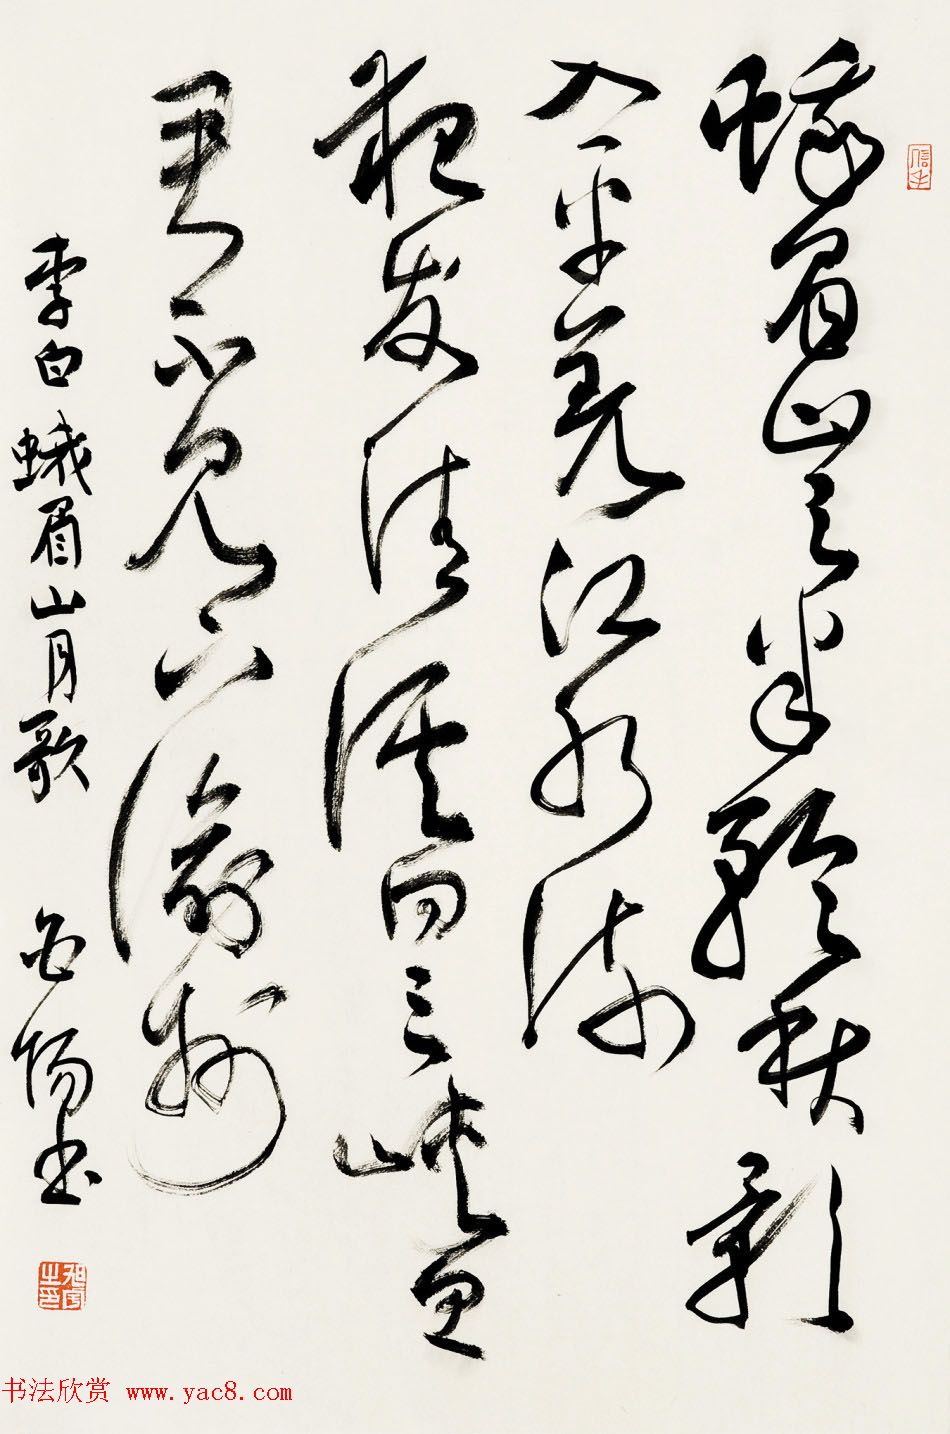 蛾眉山月半輪秋影
入平羌江水流
夜发清溪向三峡思
君不见下渝州
李白蛾眉山月歌 白陽书
旭宇之印
书法欣赏 www.yac8.com